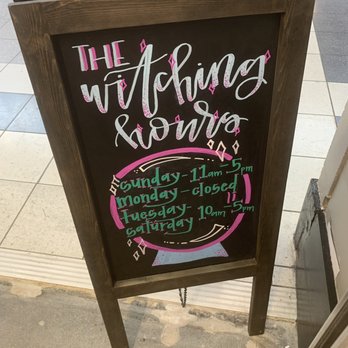 THE
witching
hours
sunday - 11am - 5pm
monday - closed
tuesday -
saturday 10am - 5pm